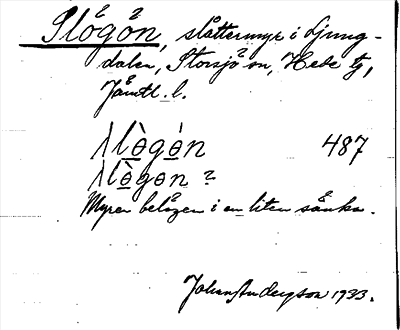 Slögön, slåttermyr i Ljung-
dalen, Storsjö sn, Hede tg,
Jämtl. l.
slò̱gó̱n 487
slò̱gɵn?
Myren belägen i en liten sänka.
Johan Anderson 1933.